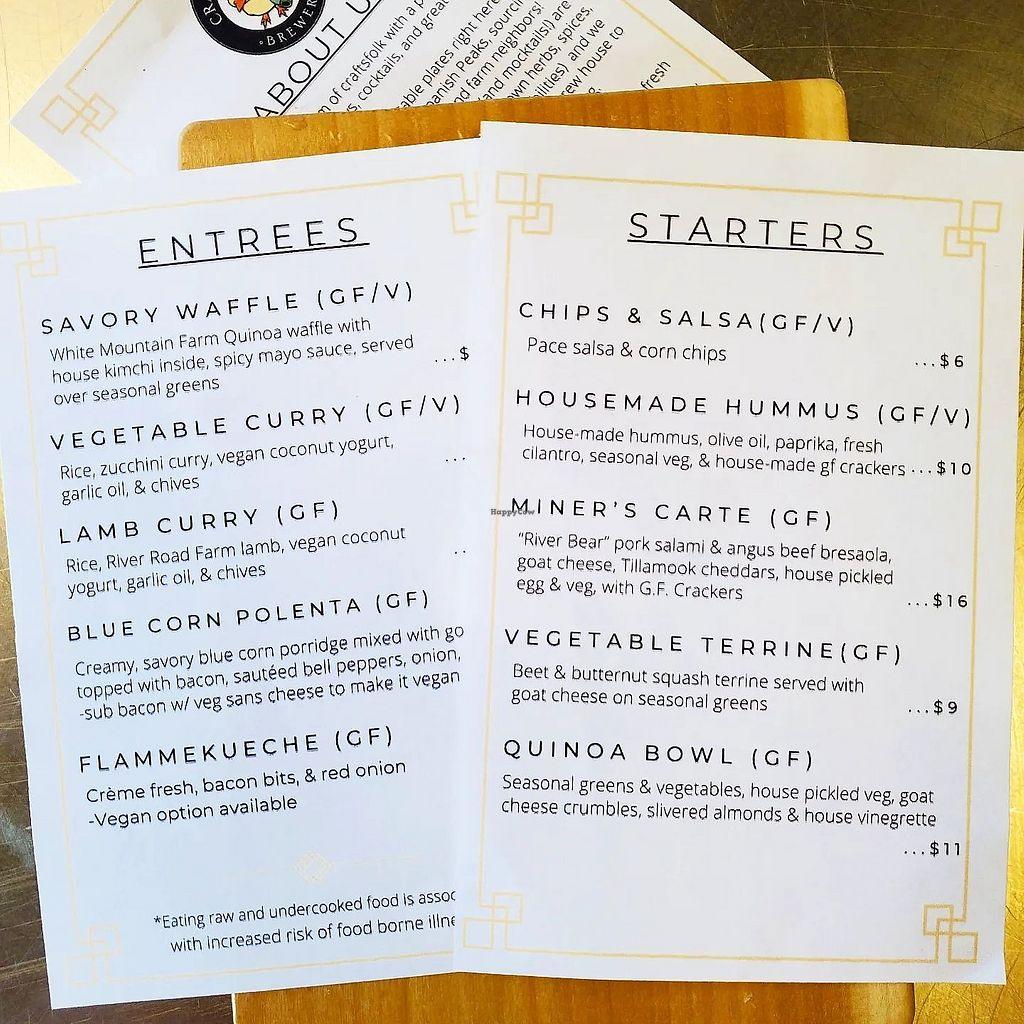 CR
BREWER
ABOUT U
of craftsfolk with a p
s, cocktails, and great
table plates right here
anish Peaks, sourci
nd farm neighbors!
(and mocktails!) are
own herbs, spices,
and we
rew house to
fresh
ENTREES
SAVORY WAFFLE (GF/V)
White Mountain Farm Quinoa waffle with
house kimchi inside, spicy mayo sauce, served ...$
over seasonal greens
VEGETABLE CURRY (GF/V)
Rice, zucchini curry, vegan coconut yogurt, ...
garlic oil, & chives
LAMB CURRY (GF)
Rice, River Road Farm lamb, vegan coconut ..
yogurt, garlic oil, & chives
BLUE CORN POLENTA (GF)
Creamy, savory blue corn porridge mixed with go
topped with bacon, sautéed bell peppers, onion,
-sub bacon w/ veg sans cheese to make it vegan
FLAMMEKUECHE (GF)
Crème fresh, bacon bits, & red onion
-Vegan option available
*Eating raw and undercooked food is assoc
with increased risk of food borne illne
STARTERS
CHIPS & SALSA(GF/V)
Pace salsa & corn chips ...$6
HOUSEMADE HUMMUS (GF/V)
House-made hummus, olive oil, paprika, fresh
cilantro, seasonal veg, & house-made gf crackers ...$10
MINER'S CARTE (GF)
HappyCow
"River Bear" pork salami & angus beef bresaola,
goat cheese, Tillamook cheddars, house pickled
egg & veg, with G.F. Crackers ...$16
VEGETABLE TERRINE(GF)
Beet & butternut squash terrine served with
goat cheese on seasonal greens ...$9
QUINOA BOWL (GF)
Seasonal greens & vegetables, house pickled veg, goat
cheese crumbles, slivered almonds & house vinegrette
...$11